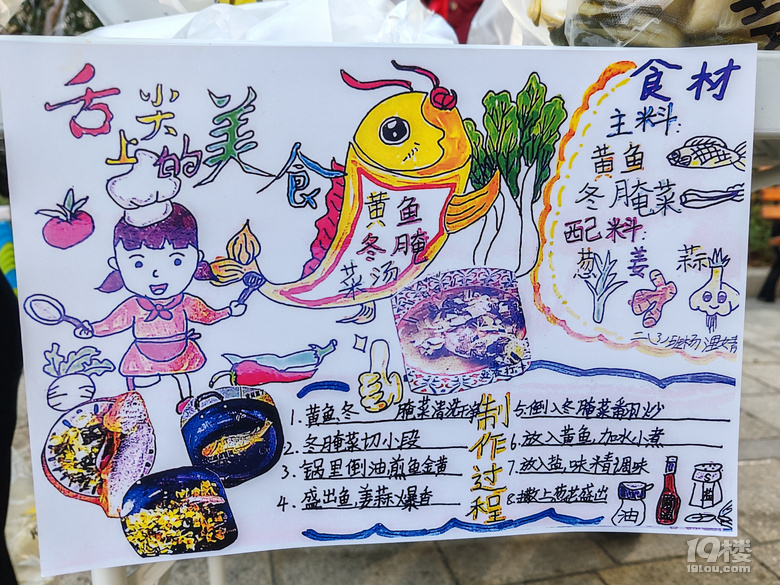 舌尖上的美食
黄鱼
冬腌
菜汤
食材
主料:
黄鱼
冬腌菜
配料:
葱 姜 蒜
制作过程
1. 黄鱼、冬腌菜清洗
2. 冬腌菜切小段
3. 锅里倒油煎鱼金黄
4. 盛出鱼姜蒜爆香
5. 倒入冬腌菜翻炒
6. 放入黄鱼,加水小煮
7. 放入盐,味精调味
8. 撒上葱花盛出
油
19楼
19lou.com